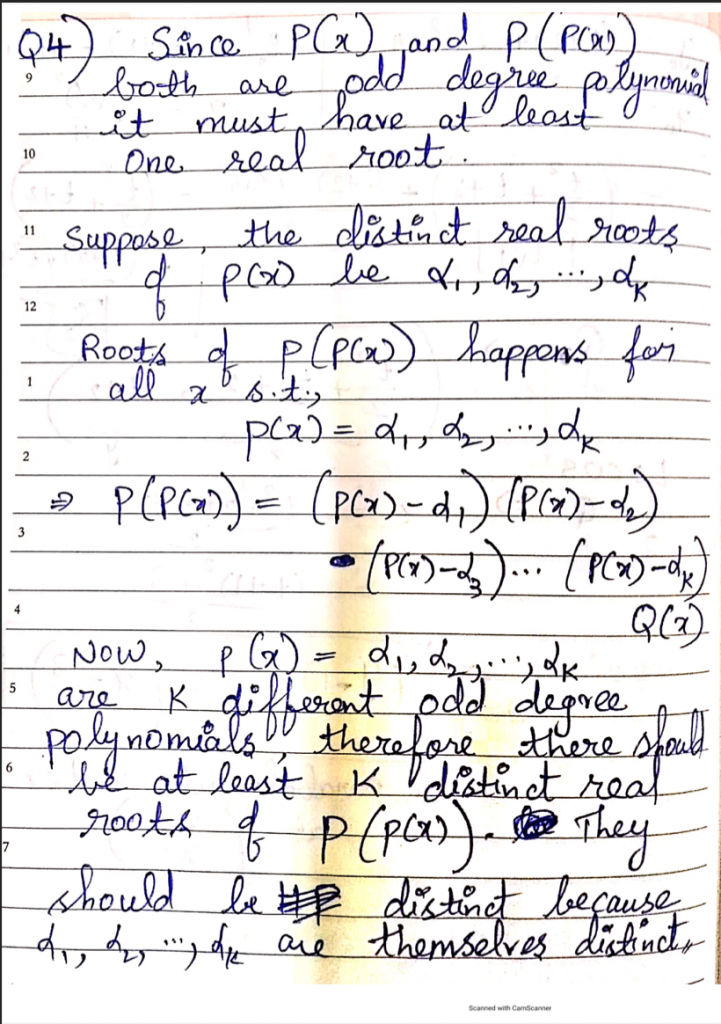 Q4) Since P(x) and P(P(x))
9 both are odd degree polynomial
it must have at least
10 one real root.
11 Suppose, the distinct real roots
of P(x) be α₁, α₂, ..., αₖ
12
Roots of P(P(x)) happens for
1 all x s.t.,
P(x) = α₁, α₂, ..., αₖ
2
⇒ P(P(x)) = (P(x)-α₁)(P(x)-α₂)
3
(P(x)-α₃)... (P(x)-αₖ)
4 Q(x)
Now, P(x) = α₁, α₂, ..., αₖ
5 are K different odd degree
polynomials, therefore there should
6 be at least K distinct real
roots of P(P(x)). They
7
should be distinct because
α₁, α₂, ..., αₖ are themselves distinct,,
Scanned with CamScanner